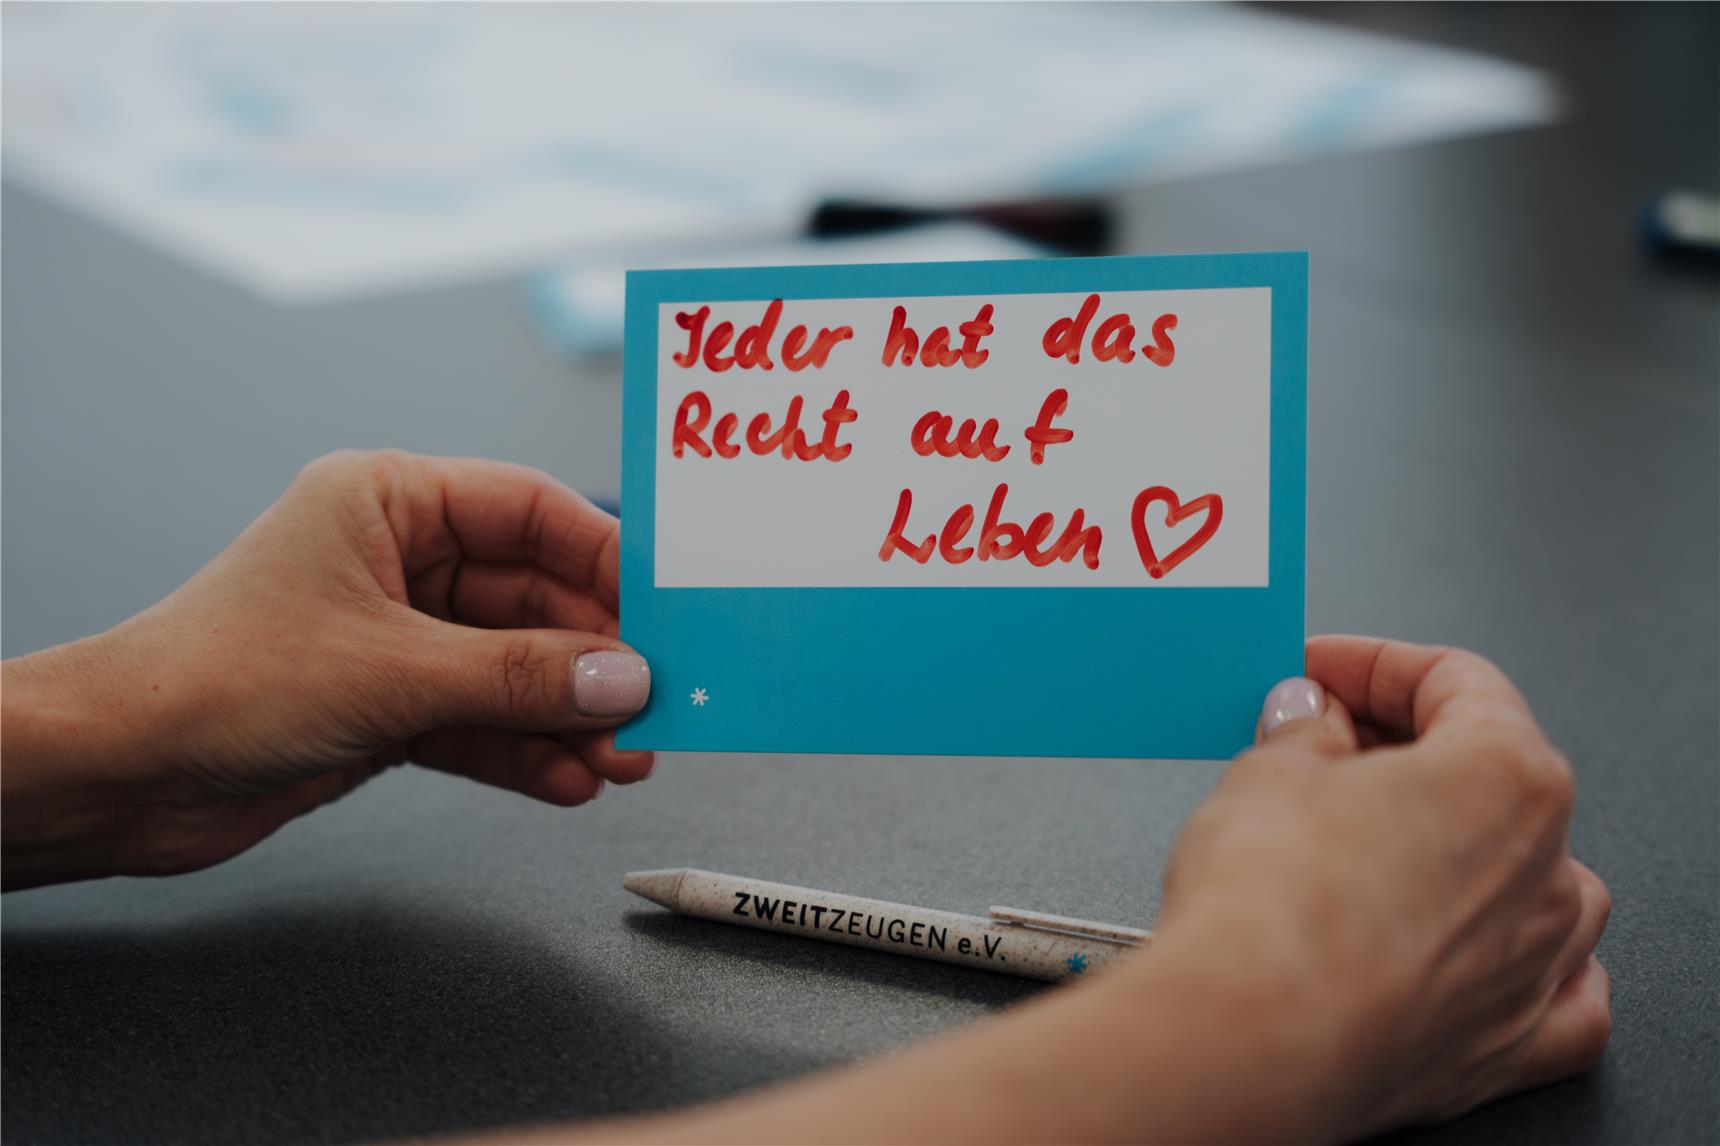 Jeder hat das
Recht auf
Leben ♡
*
ZWEITZEUGEN e.V. *